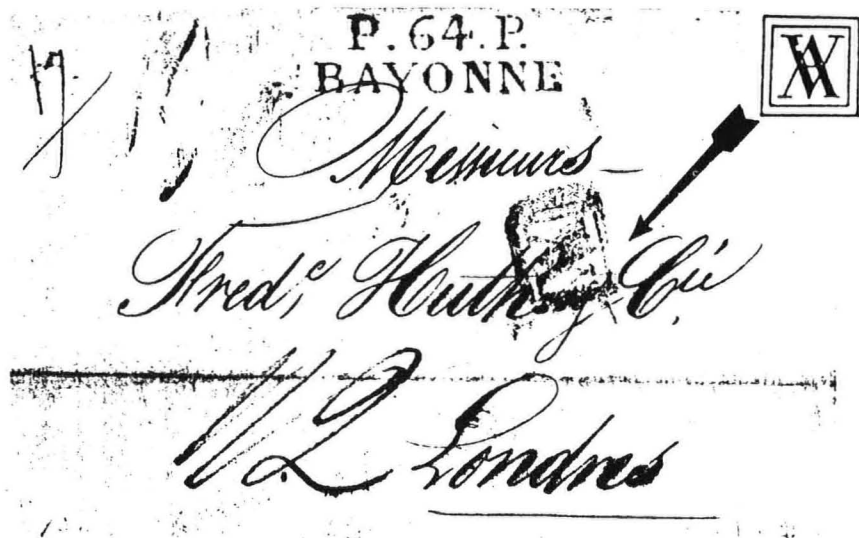 P.64.P.
BAYONNE
Messieurs
Fred.c Huth y Cie
12 Londres